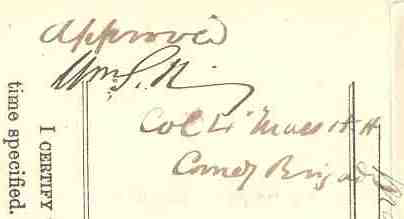 Approved
Wm. S.
Col 4" Mass H A
Comdg Brigade
I CERTIFY
time specified.